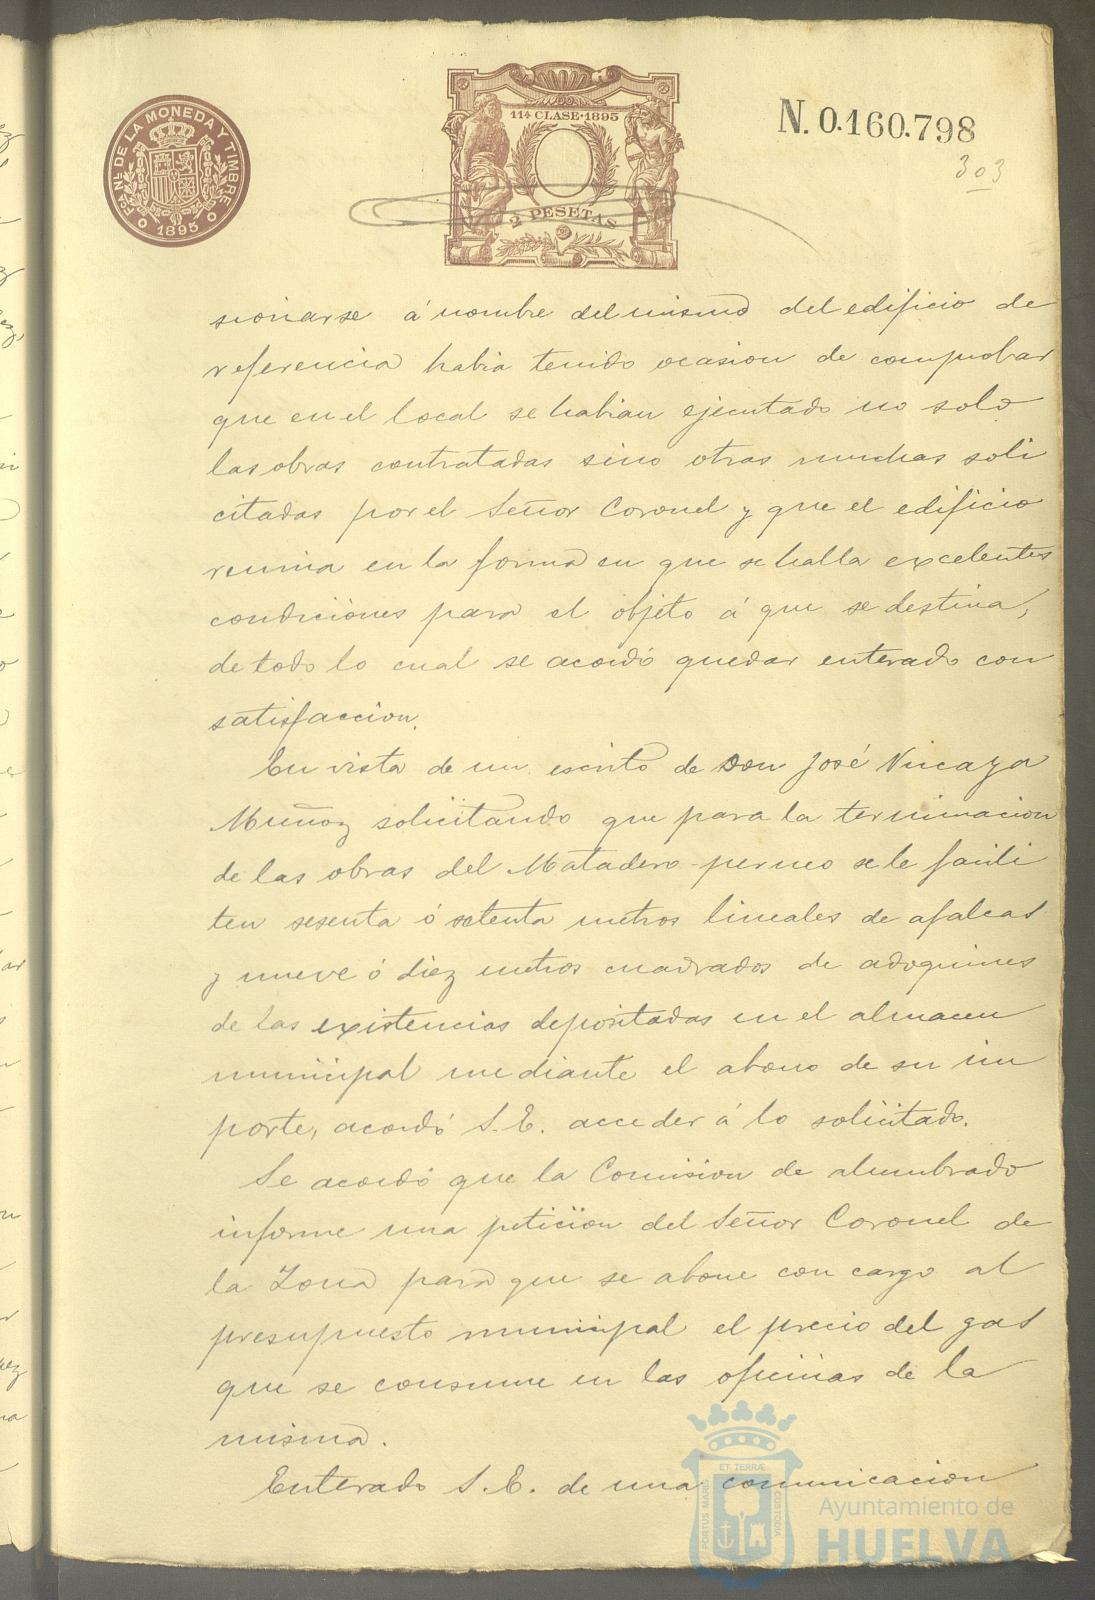 FCA. NL. DE LA MONEDA Y TIMBRE
1895
11ª CLASE·1895
2 PESETAS
N. 0.160.798
303
sionarse á nombre del mismo del edificio de
referencia habia tenido ocasion de comprobar
que en el local se habian ejecutado no solo
las obras contratadas sino otras muchas soli
citadas por el Señor Coronel y que el edificio
reunia en la forma en que se halla excelentes
condiciones para el objeto á que se destina,
de todo lo cual se acordó quedar enterado con
satisfaccion.
En vista de un escrito de Don José Vizcaya
Muñoz solicitando que para la terminacion
de las obras del Matadero se le facili
ten sesenta ó setenta metros lineales de
y nueve ó diez metros cuadrados de adoquines
de las existencias depositadas en el almacen
municipal mediante el abono de su im
porte, acordó S.E. acceder á lo solicitado.
Se acordó que la Comision de alumbrado
informe una peticion del Señor Coronel de
la Zona para que se abone con cargo al
presupuesto municipal el precio del gas
que se consume en las oficinas de la
misma.
Enterado S.E. de una comunicacion
PORTUS MARIS ET TERRÆ CUSTODIA
Ayuntamiento de
HUELVA